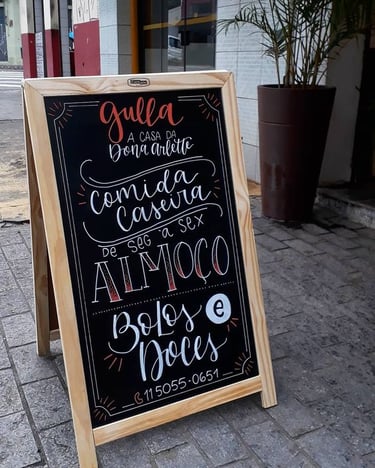 gulla
A CASA DA
Dona Arlette
Comida
Caseira
DE SEG A SEX
ALMOÇO
BOLOS e
DOCES
11 5055-0651